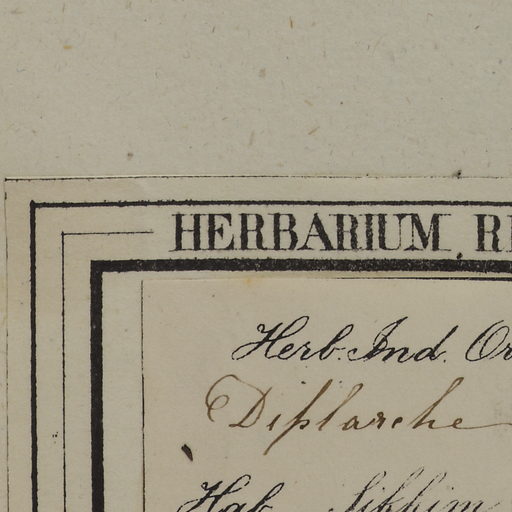 HERBARIUM
Herb. Ind. Or
Diplarche
Hab. Sikkim